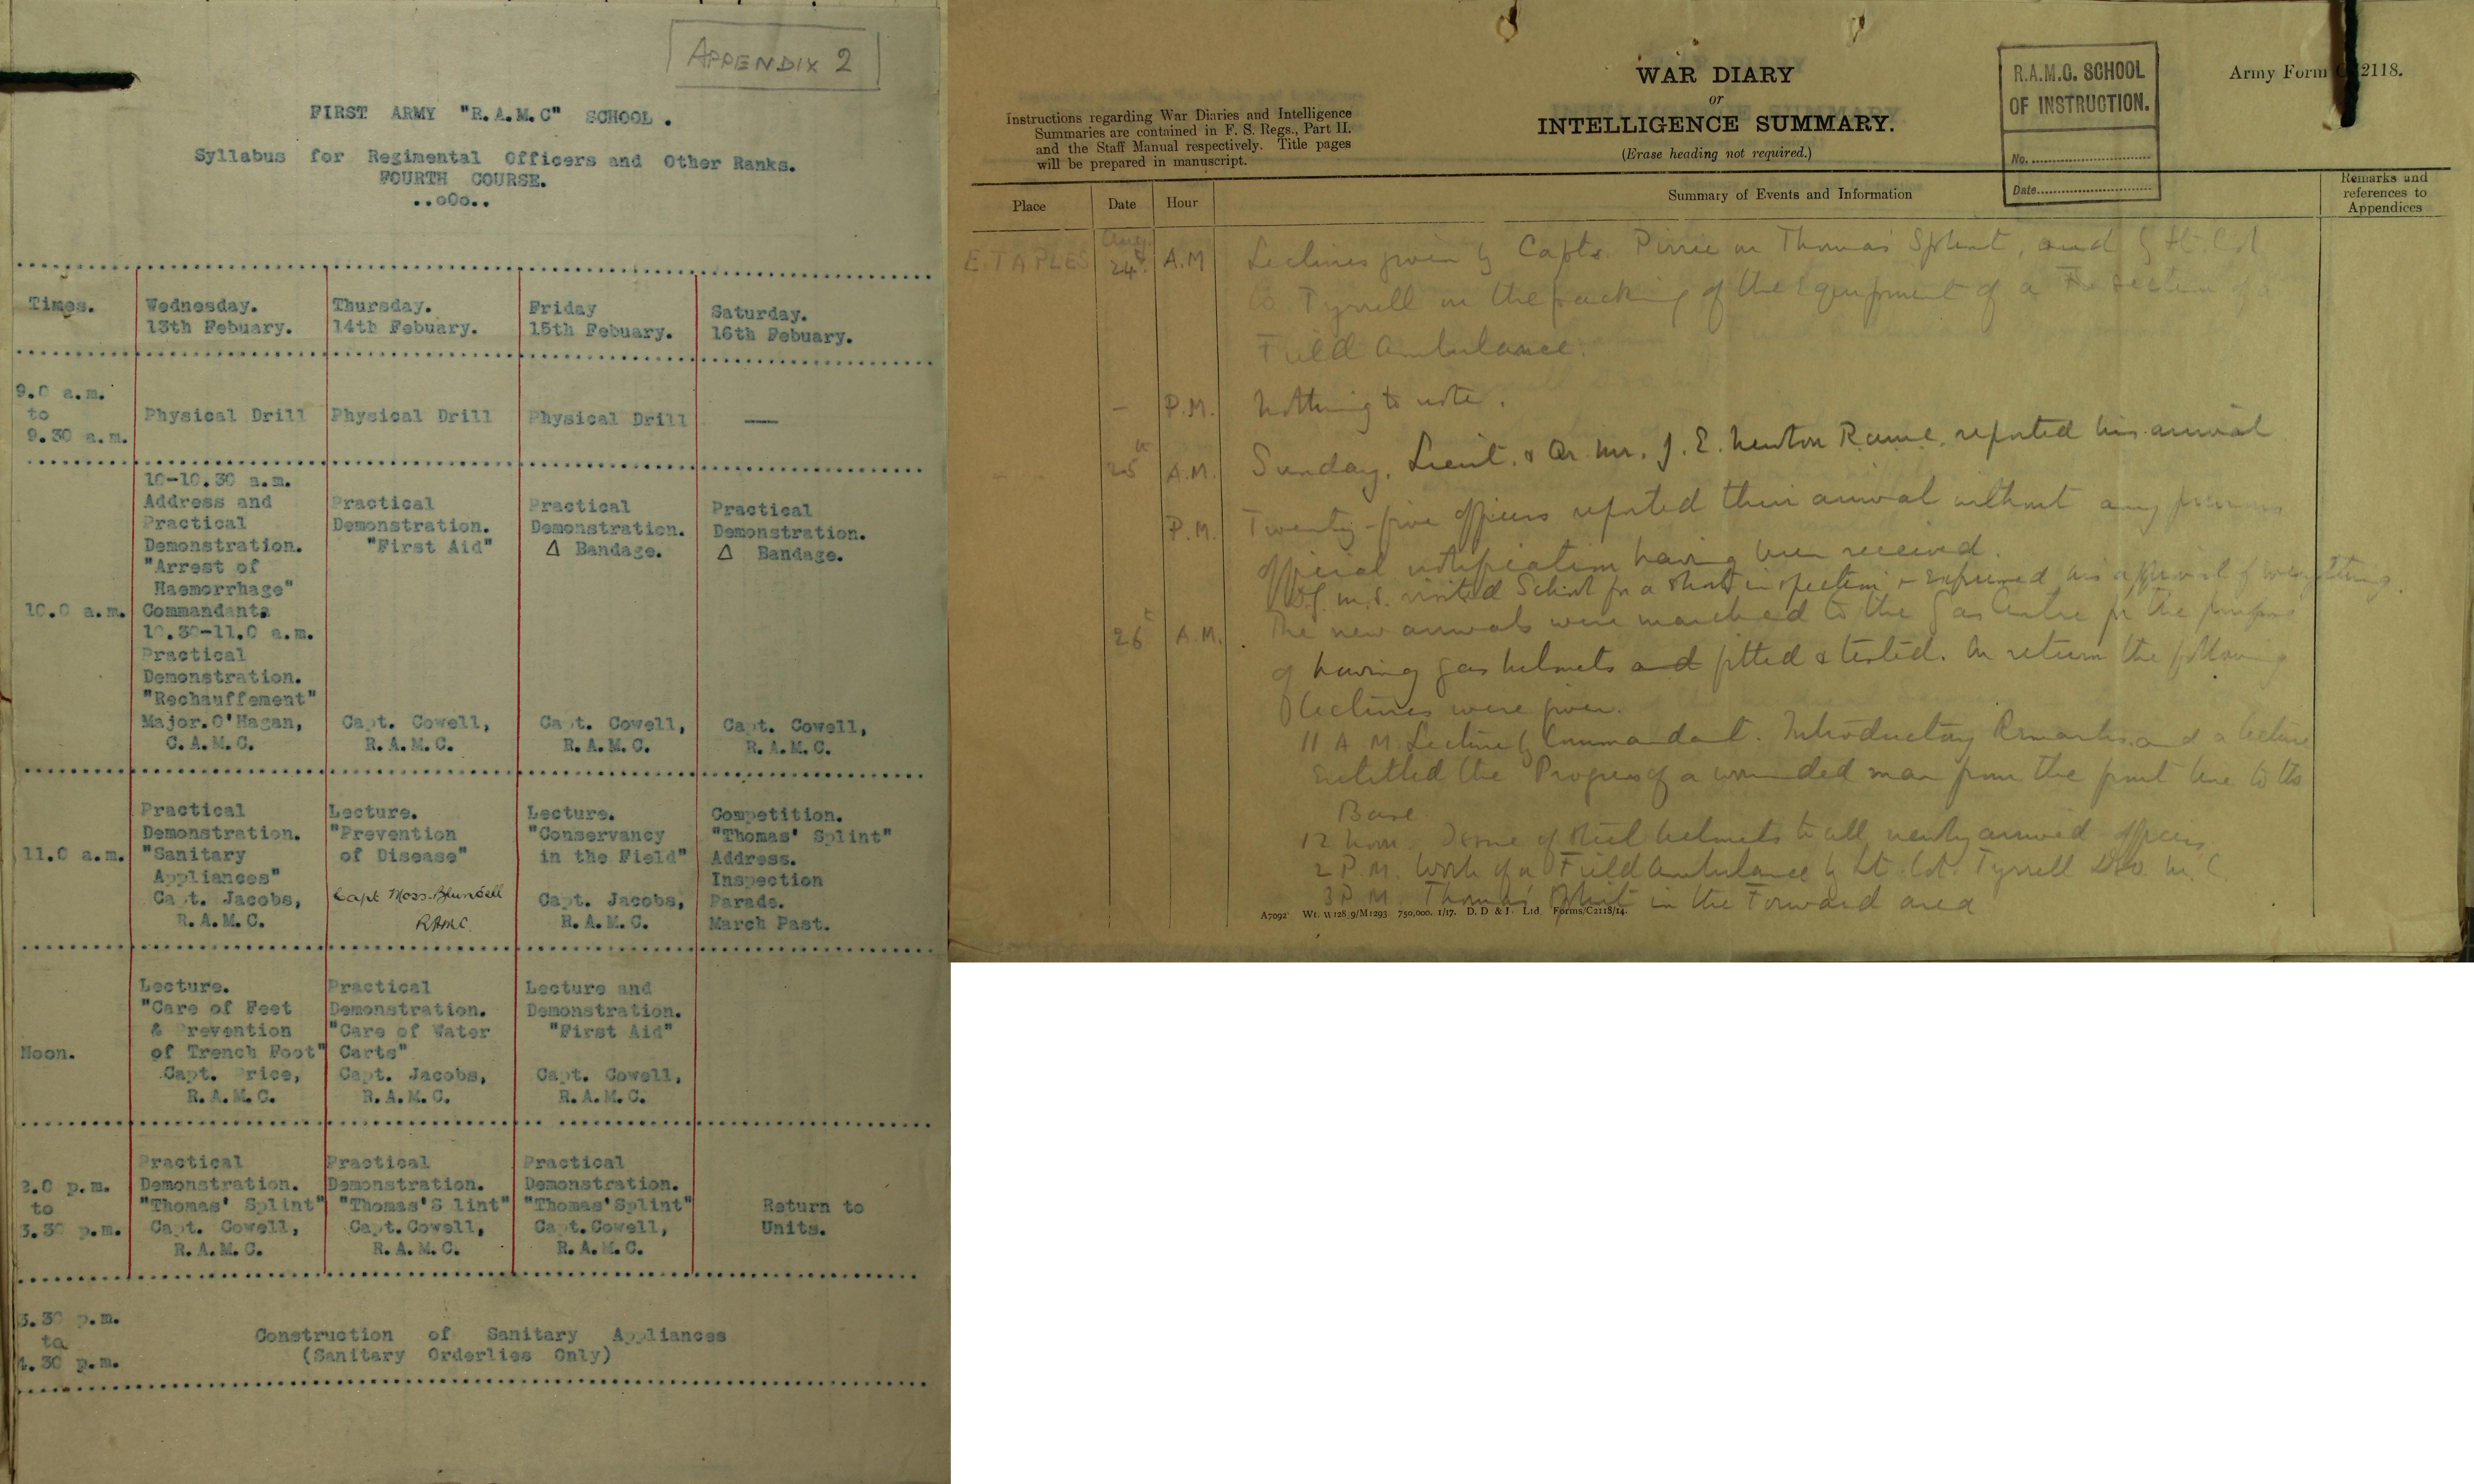 APPENDIX 2
FIRST ARMY "R.A.M.C" SCHOOL.
Syllabus for Regimental Officers and Other Ranks.
FOURTH COURSE.
..oOo..
Times.
Wednesday.
13th Febuary.
Thursday.
14th Febuary.
Friday
15th Febuary.
Saturday.
16th Febuary.
9.0 a.m.
to
9.30 a.m.
Physical Drill
Physical Drill
Physical Drill
10.0 a.m.
10-10.30 a.m.
Address and
Practical
Demonstration.
"Arrest of
Haemorrhage"
Commandant.
10.30-11.0 a.m.
Practical
Demonstration.
"Rechauffement"
Major.O'Hagan,
C.A.M.C.
Practical
Demonstration.
"First Aid"
Capt. Cowell,
R.A.M.C.
Practical
Demonstration.
Δ Bandage.
Capt. Cowell,
R.A.M.C.
Practical
Demonstration.
Δ Bandage.
Capt. Cowell,
R.A.M.C.
11.0 a.m.
Practical
Demonstration.
"Sanitary
Appliances"
Capt. Jacobs,
R.A.M.C.
Lecture.
"Prevention
of Disease"
Capt Moss-Blundell
RAMC.
Lecture.
"Conservancy
in the Field"
Capt. Jacobs,
R.A.M.C.
Competition.
"Thomas' Splint"
Address.
Inspection
Parade.
March Past.
Noon.
Lecture.
"Care of Feet
& Prevention
of Trench Foot"
Capt. Price,
R.A.M.C.
Practical
Demonstration.
"Care of Water
Carts"
Capt. Jacobs,
R.A.M.C.
Lecture and
Demonstration.
"First Aid"
Capt. Cowell,
R.A.M.C.
2.0 p.m.
to
3.30 p.m.
Practical
Demonstration.
"Thomas' Splint"
Capt. Cowell,
R.A.M.C.
Practical
Demonstration.
"Thomas'S lint"
Capt.Cowell,
R.A.M.C.
Practical
Demonstration.
"Thomas'Splint"
Capt.Cowell,
R.A.M.C.
Return to
Units.
3.30 p.m.
to
4.30 p.m.
Construction of Sanitary Appliances
(Sanitary Orderlies Only)
Instructions regarding War Diaries and Intelligence
Summaries are contained in F. S. Regs., Part II.
and the Staff Manual respectively. Title pages
will be prepared in manuscript.
WAR DIARY
or
INTELLIGENCE SUMMARY.
(Erase heading not required.)
R.A.M.C. SCHOOL
OF INSTRUCTION.
No.
Date
Army Form C. 2118.
Place
Date
Hour
Summary of Events and Information
Remarks and
references to
Appendices
ETAPLES Aug. 24th A.M Lectures given by Capts. Pirrie on Thomas Splint, and by Lt Col
Tyrrell on the packing of the Equipment of a section of a
Field Ambulance.
- P.M. Nothing to note.
25th A.M. Sunday. Lieut. & Qr. Mr. J. E. Newton R.A.M.C. reported his arrival
P.M. Twenty-five officers reported their arrival without any previous
official notification having been received.
D.G.M.S. visited School for a short inspection & expressed his approval of everything.
26th A.M. The new arrivals were marched to the Gas Centre for the purpose
of having gas helmets and fitted & tested. On return the following
lectures were given.
11 A.M. Lecture by Commandant. Introductory Remarks and a lecture
entitled the Progress of a wounded man from the front line to the
Base
12 noon. Issue of steel helmets to all newly arrived officers
2 P.M. Work of a Field Ambulance by Lt. Col. Tyrrell DSO. M.C
3 P.M. Thomas' Splint in the Forward area
A7092 Wt. W128.9/M1293 750,000. 1/17. D. D & L. Ltd. Forms/C2118/14.